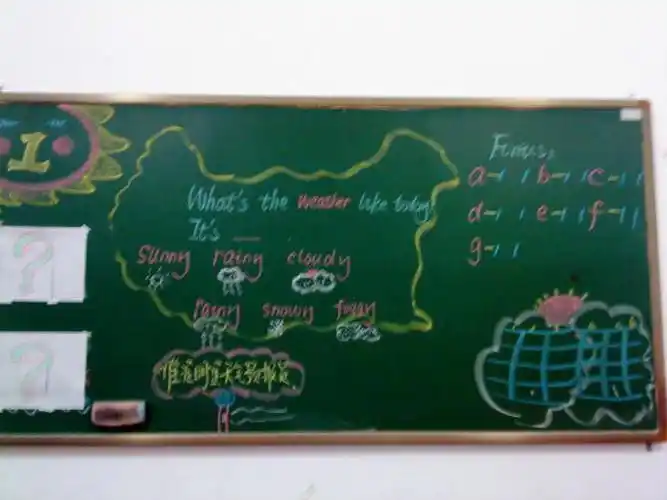 1
What's the weather like today
It's __
sunny rainy cloudy
rainy snowy foggy
a-/ / b-/ / c-/ /
d-/ / e-/ / f-/ /
g-/ /
?
?